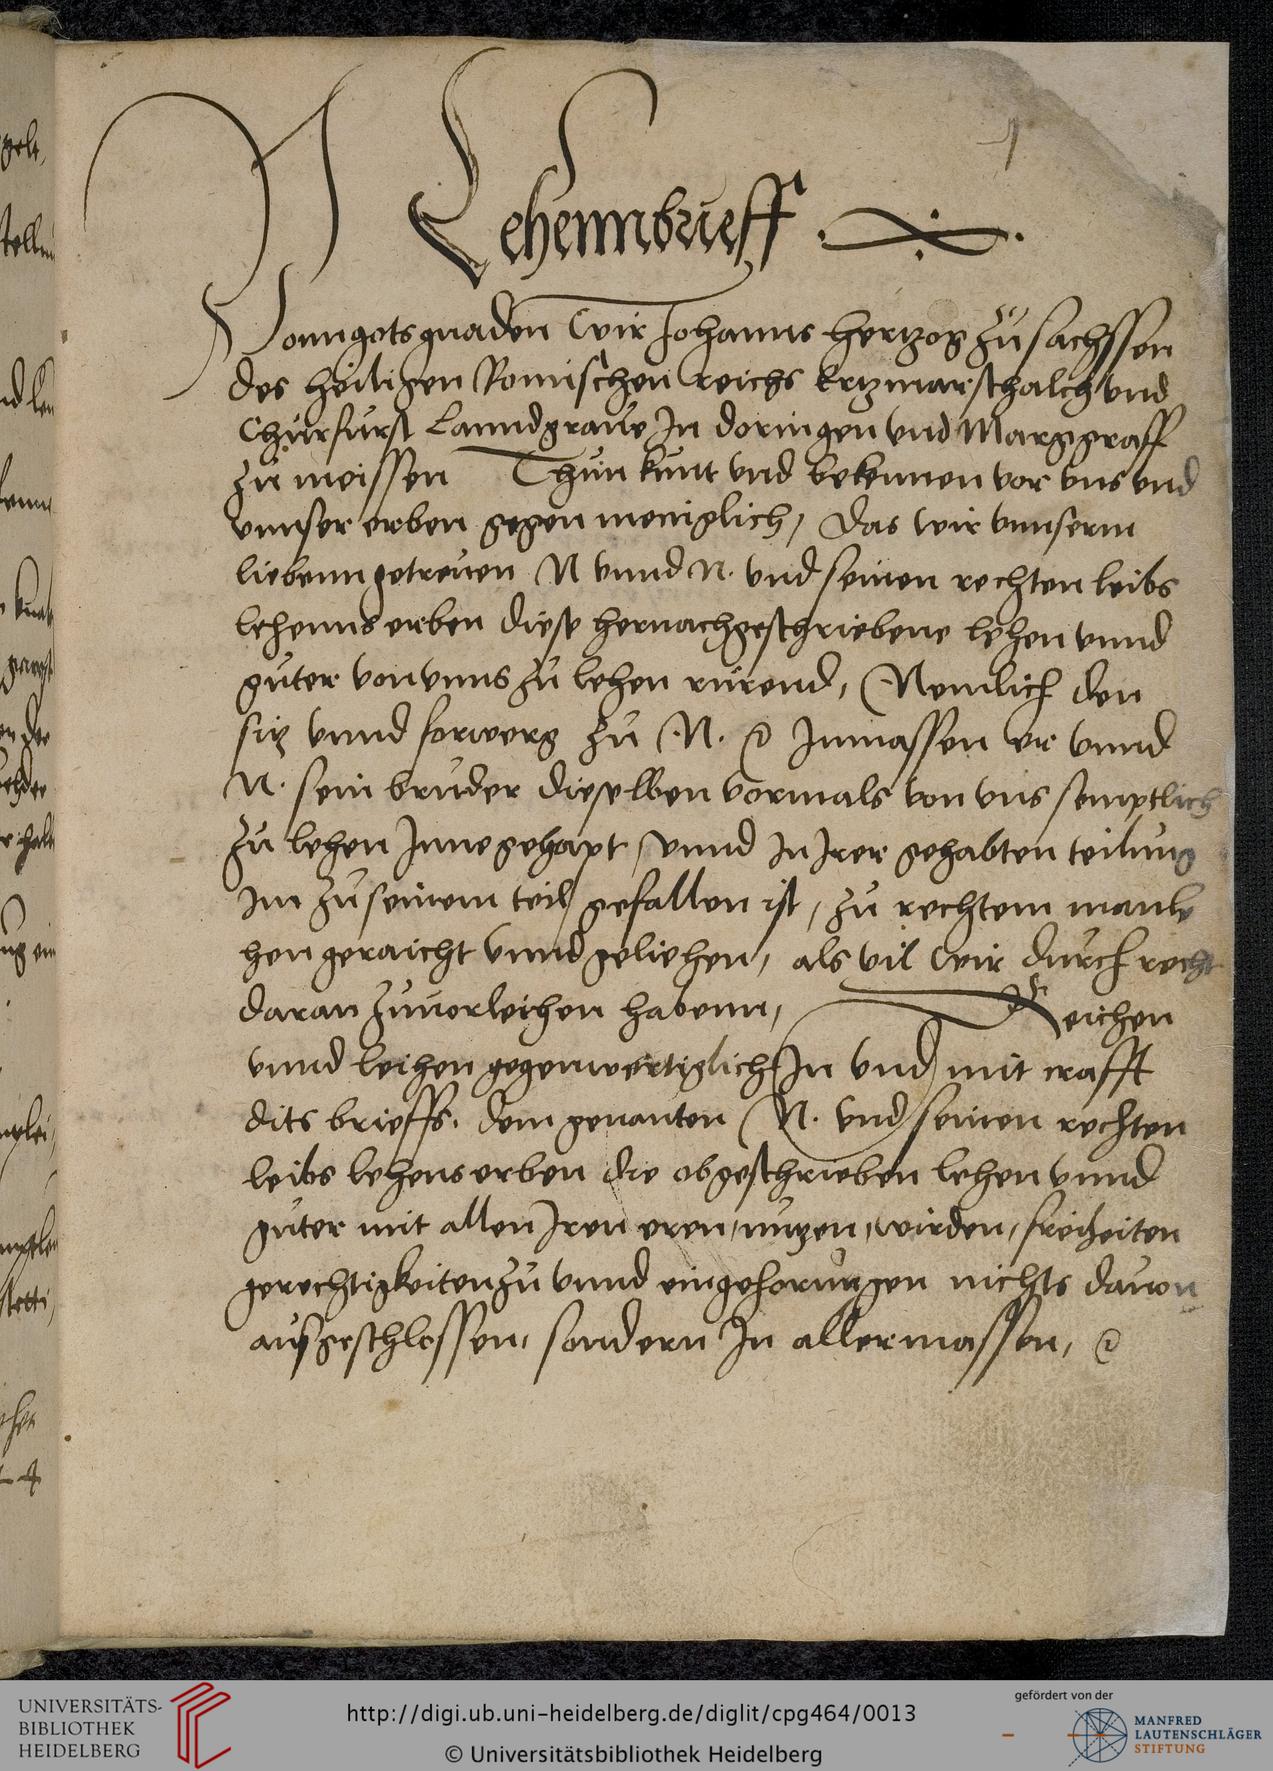 1
Lehennbrieff
Vonn gots gnaden Wir Johanns Hertzog zu sachssen
des heiligen Romischen reichs Ertzmarschalch vnd
Churfurst Lanndgraue In doringen vnd Marggraff
zu meissen Thun kunt vnd bekennen vor vns vnd
vnnser erben gegen meniglich, Das wir vnnserm
liebenn getreuen N vnnd N. vnd seinen rechten leibs
lehenns erben diese hernachgeschriebene lehen vnnd
guter von vnns zu lehen rurend, Nemlich den
sitz vnnd forwerg zu N. Inmassen er vnnd
N. sein bruder dieselben vormals von vns semptlich
zu lehen Innegehapt, vnnd In Irer gehabten teilung
Im zu seinem teil gefallen ist, zu rechtem manle
hen geraicht vnnd geliehen, als vil Wir durch recht
daran zuuerleihen habenn, Reichen
vnnd leihen gegenwertiglich In vnd mit crafft
dits brieffs. dem genanten N. vnd seinen rechten
leibs lehens erben die obgeschrieben lehen vnnd
guter mit allen Iren eren, nutzen, wirden, freiheiten
gerechtigkeiten zu vnnd eingehorungen nichts dauon
außgeschlossen, sondern In allermassen,
UNIVERSITÄTS-
BIBLIOTHEK
HEIDELBERG
http://digi.ub.uni-heidelberg.de/diglit/cpg464/0013
© Universitätsbibliothek Heidelberg
gefördert von der
MANFRED
LAUTENSCHLÄGER
STIFTUNG